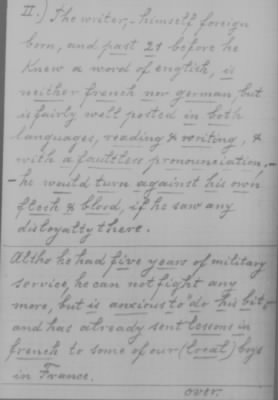 II.) The writer, - himself, foreign
born, and past 21 before he
knew a word of english, is
neither french nor german, but
is fairly well posted in both
languages, reading & writing, &
with a faultess pronounciation, -
- he would turn against his own
flesh & blood, if he saw any
disloyalty there.
Altho he had five years of military
service, he can not fight any
more, but is anxious to "do his bit"
and has already sent lessons in
french to some of our (local) boys
in France.
over.